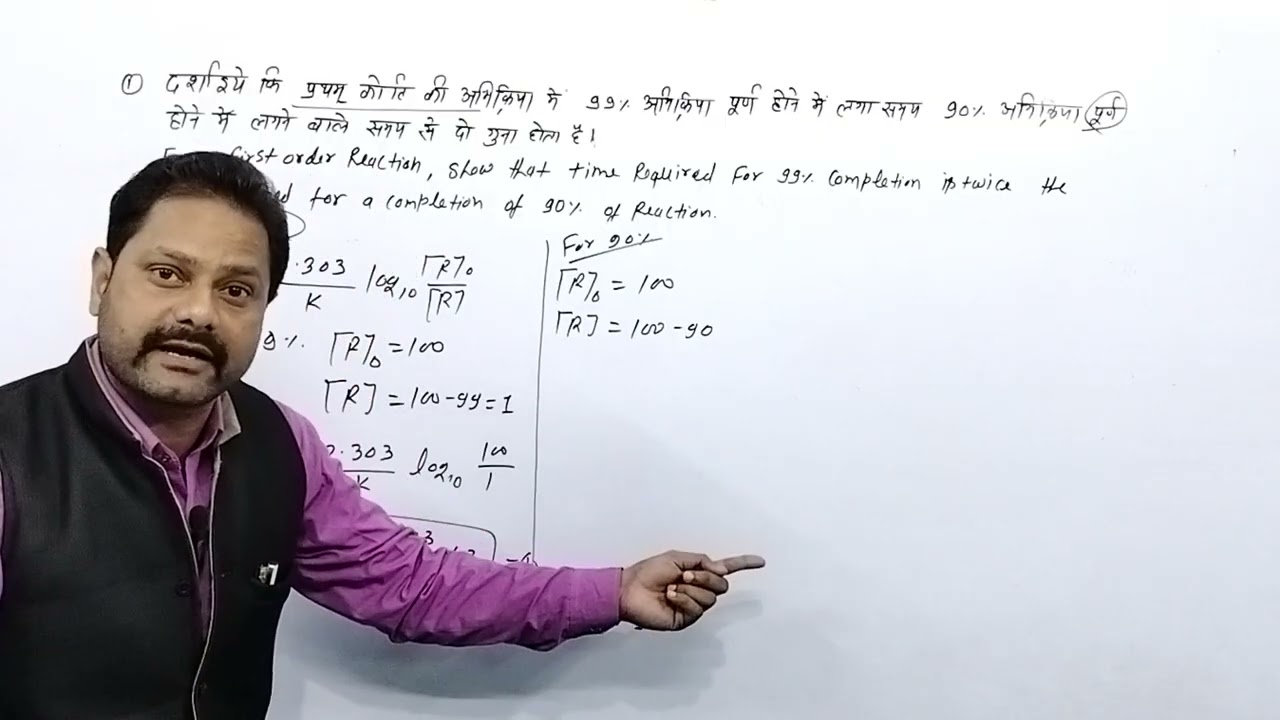 ① दर्शाइये कि प्रथम कोटि की अभिक्रिया में 99% अभिक्रिया पूर्ण होने में लगा समय 90% अभिक्रिया पूर्ण
होने में लगने वाले समय से दो गुना होता है।
first order Reaction, show that time Required For 99% completion is twice the
for a completion of 90% of Reaction.
.303/K log₁₀ [R]₀/[R]
9%. [R]₀ = 100
[R] = 100-99 = 1
2.303/K log₁₀ 100/1
For 90%
[R]₀ = 100
[R] = 100-90